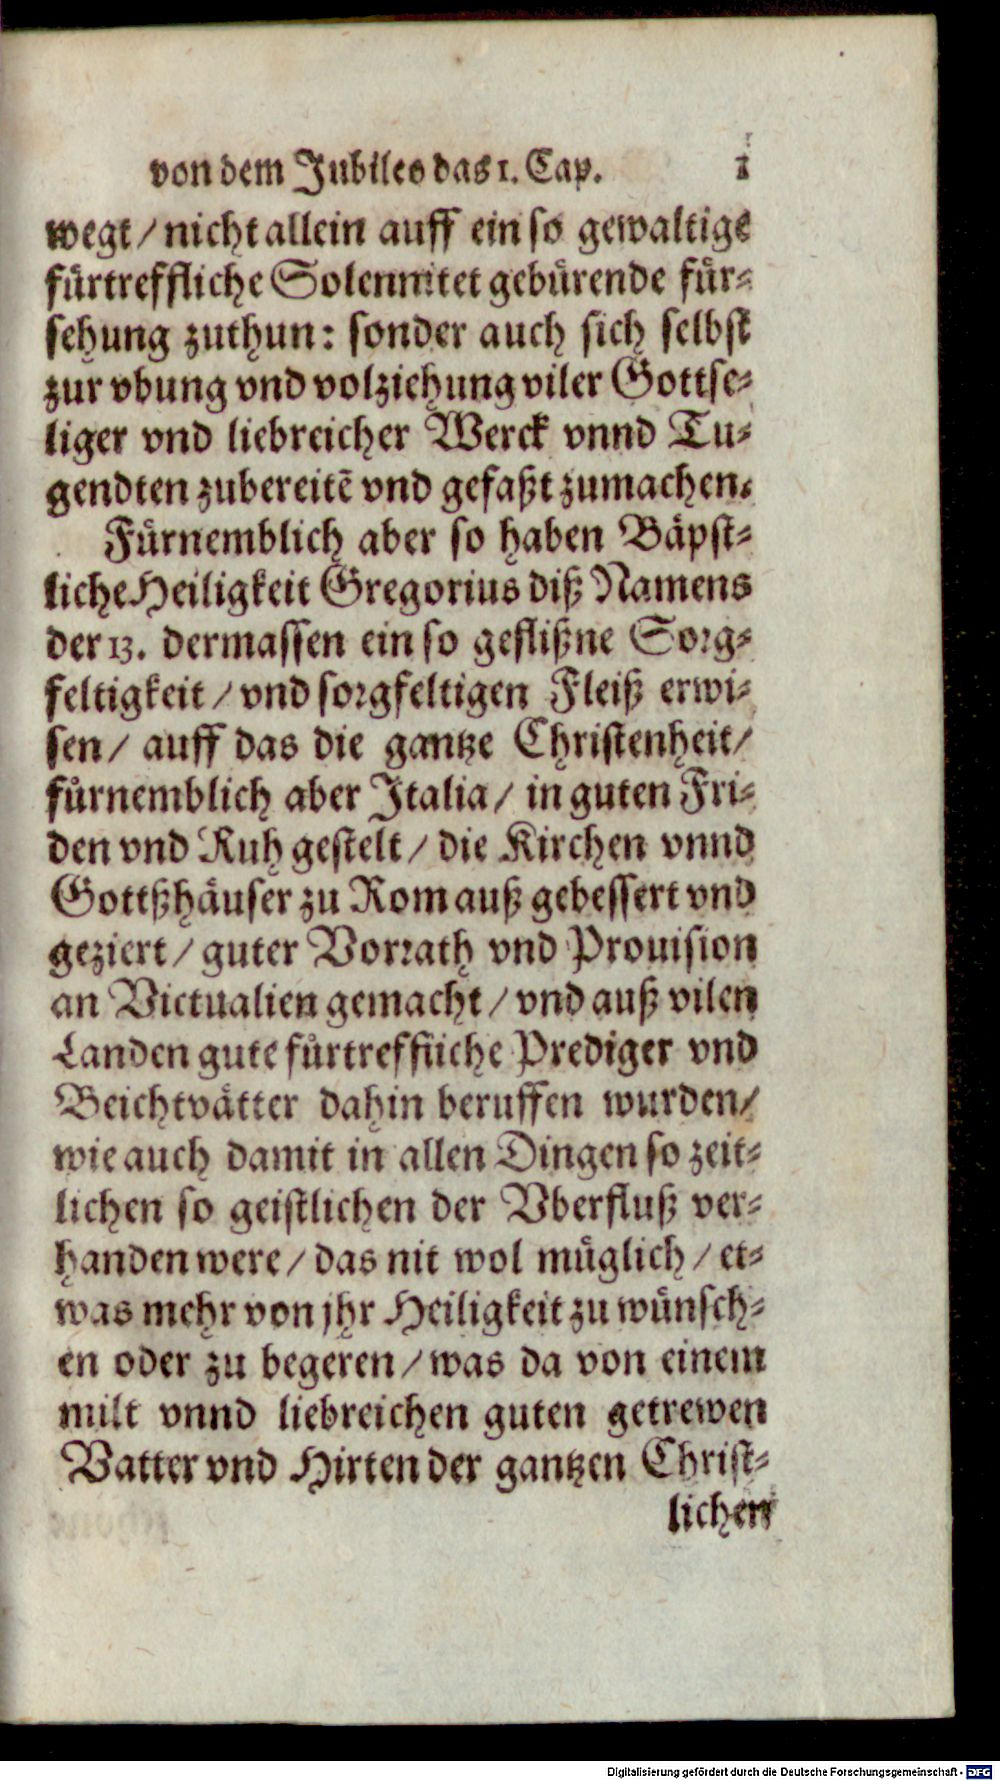 von dem Jubileo das 1. Cap. 1
wegt / nicht allein auff ein so gewaltige
fürtreffliche Solennitet gebürende für-
sehung zuthun: sonder auch sich selbst
zur vbung vnd volziehung viler Gottse-
liger vnd liebreicher Werck vnnd Tu-
gendten zubereitē vnd gefaßt zumachen.
Fürnemblich aber so haben Bäpst-
liche Heiligkeit Gregorius diß Namens
der 13. dermassen ein so geflißne Sorg-
feltigkeit / vnd sorgfeltigen Fleiß erwi-
sen / auff das die gantze Christenheit /
fürnemblich aber Italia / in guten Fri-
den vnd Ruh gestelt / die Kirchen vnnd
Gottßhäuser zu Rom auß gebessert vnd
geziert / guter Vorrath vnd Prouision
an Victualien gemacht / vnd auß vilen
Landen gute fürtreffliche Prediger vnd
Beichtvätter dahin beruffen wurden /
wie auch damit in allen Dingen so zeit-
lichen so geistlichen der Vberfluß ver-
handen were / das nit wol müglich / et-
was mehr von jhr Heiligkeit zu wünsch-
en oder zu begeren / was da von einem
milt vnnd liebreichen guten getrewen
Vatter vnd Hirten der gantzen Christ-
lichen
Digitalisierung gefördert durch die Deutsche Forschungsgemeinschaft - DFG